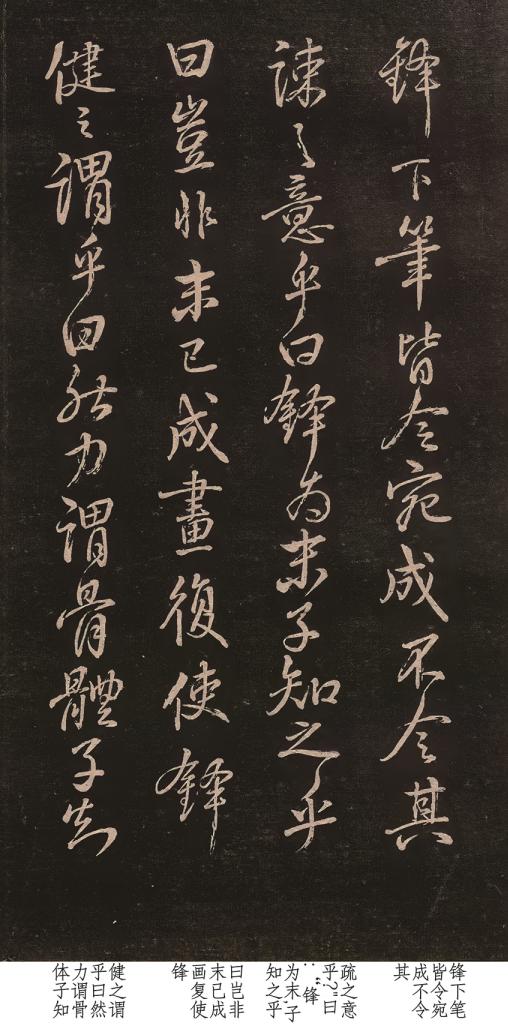 鋒下筆皆令宛成不令其
踈之意乎曰鋒为末子知之乎
曰豈非末已成畫復使鋒
健之謂乎曰然力謂骨體子知
锋下笔
皆令宛
成不令
其
疏之意
乎?曰
:“锋
为末,子
知之乎
曰岂非
末已成
画复使
锋
健之谓
乎曰然
力谓骨
体子知